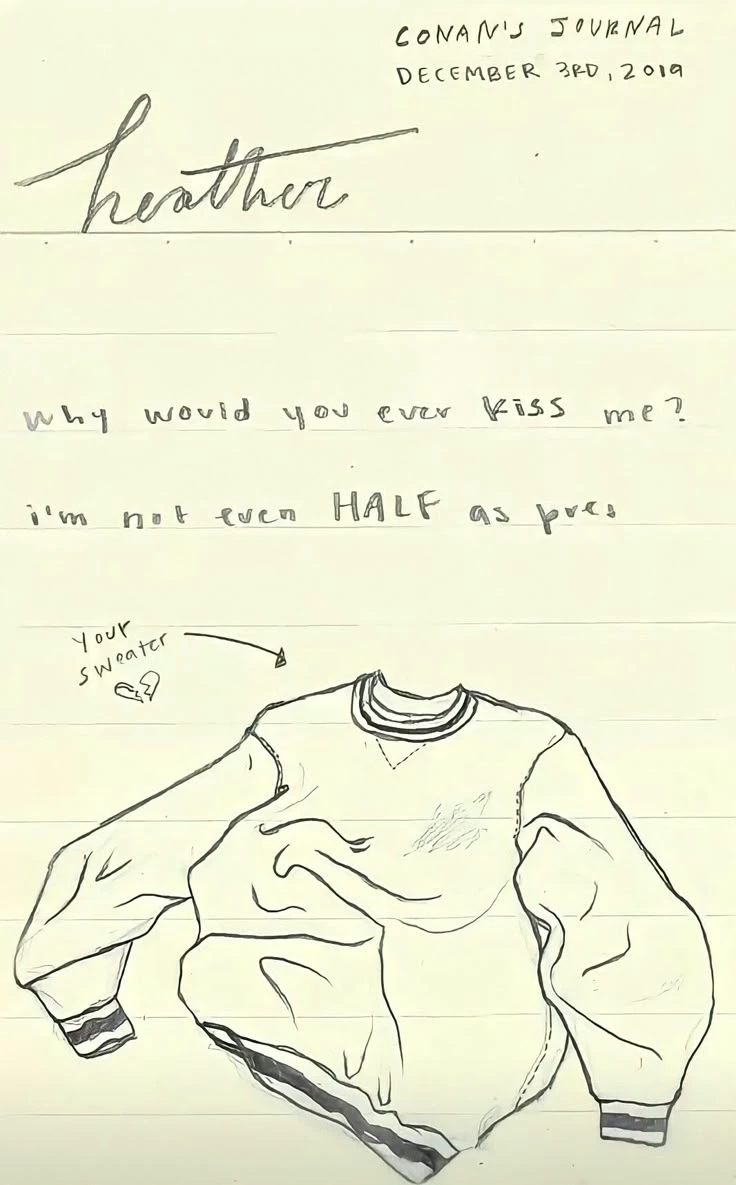 CONAN'S JOURNAL
DECEMBER 3RD, 2019
heather
why would you ever kiss me?
i'm not even HALF as pret
your
sweater